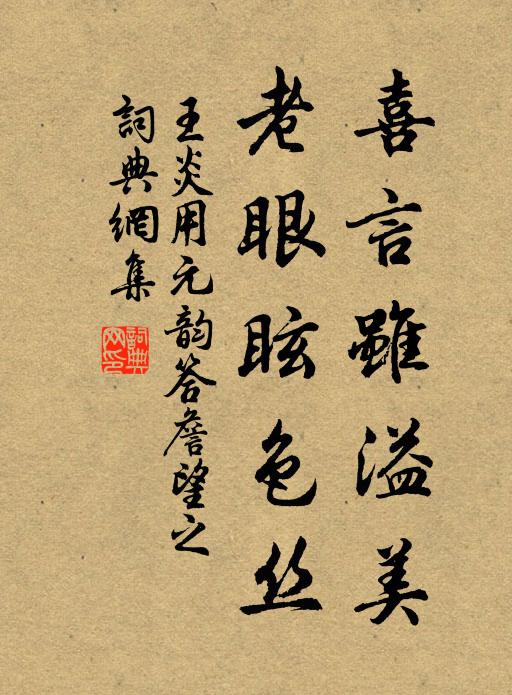 喜言雖溢美
老眼眩色丝
王炎用元韵答詹望之
詞典網集
詞典网印